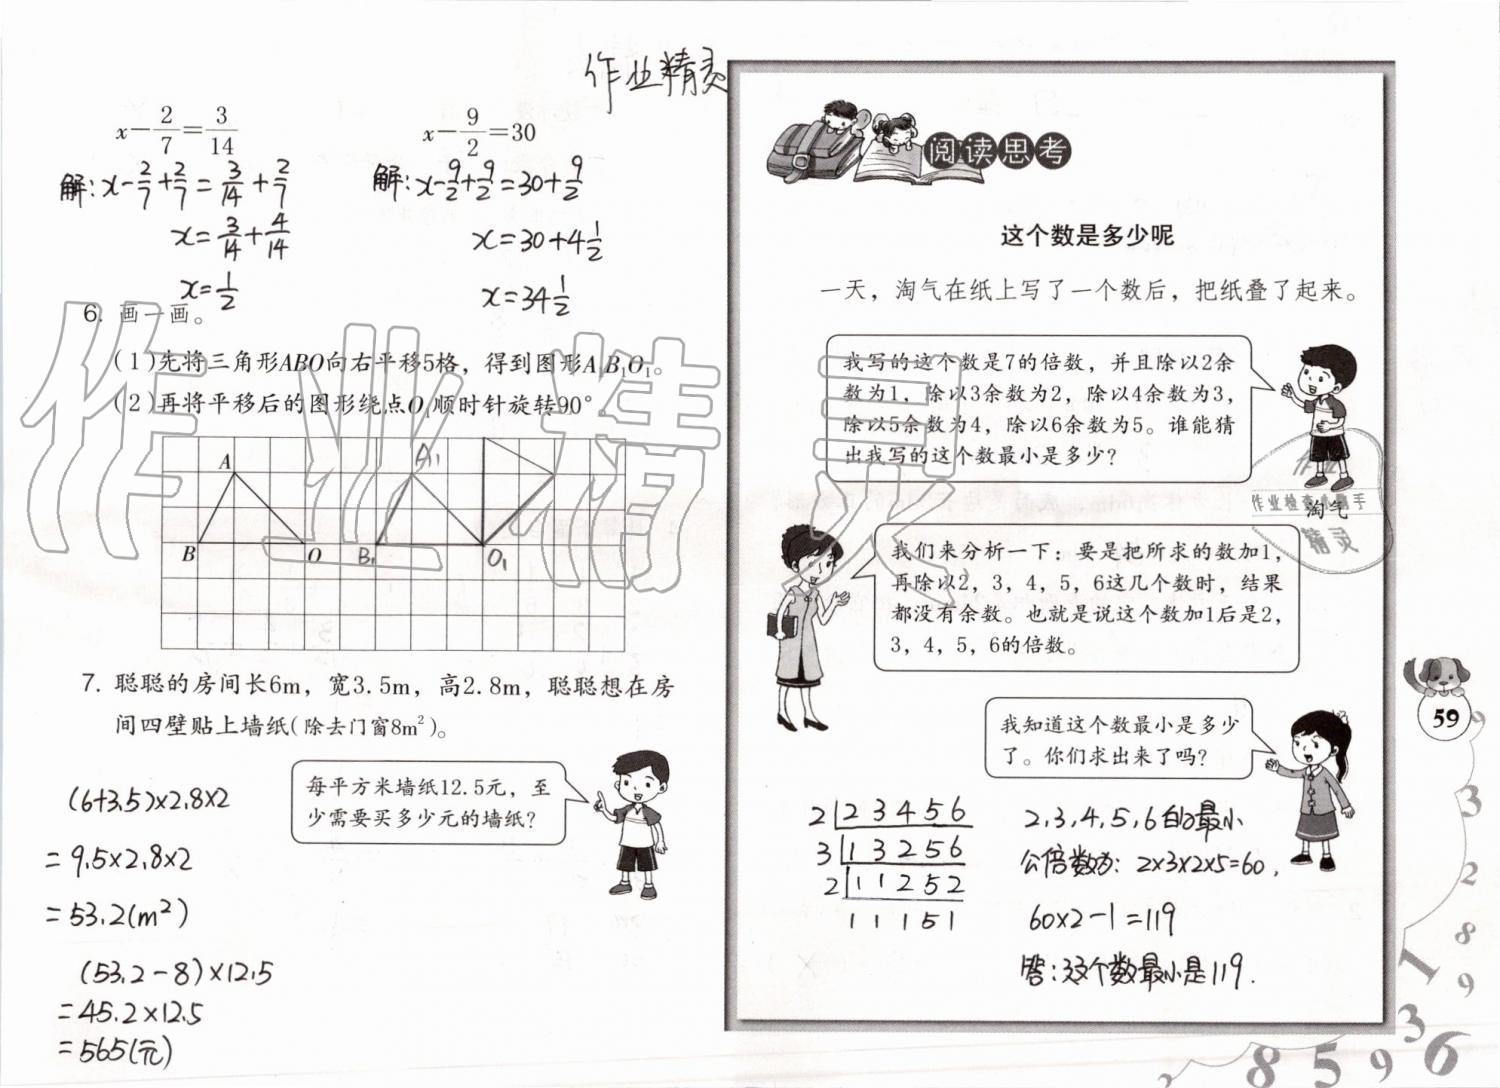 作业精灵
x-2/7=3/14
解:x-2/7+2/7=3/14+2/7
x=3/14+4/14
x=1/2
x-9/2=30
解:x-9/2+9/2=30+9/2
x=30+4 1/2
x=34 1/2
6. 画一画。
(1)先将三角形ABO向右平移5格，得到图形A₁B₁O₁。
(2)再将平移后的图形绕点O₁顺时针旋转90°。
A
A₁
B
O
B₁
O₁
7. 聪聪的房间长6m，宽3.5m，高2.8m，聪聪想在房
间四壁贴上墙纸(除去门窗8m²)。
每平方米墙纸12.5元，至
少需要买多少元的墙纸？
(6+3.5)×2.8×2
=9.5×2.8×2
=53.2(m²)
(53.2-8)×12.5
=45.2×12.5
=565(元)
阅读思考
这个数是多少呢
一天，淘气在纸上写了一个数后，把纸叠了起来。
我写的这个数是7的倍数，并且除以2余
数为1，除以3余数为2，除以4余数为3，
除以5余数为4，除以6余数为5。谁能猜
出我写的这个数最小是多少？
淘气
作业
作业检查小帮手
精灵
我们来分析一下：要是把所求的数加1，
再除以2，3，4，5，6这几个数时，结果
都没有余数。也就是说这个数加1后是2，
3，4，5，6的倍数。
我知道这个数最小是多少
了。你们求出来了吗？
2 2 3 4 5 6
3 1 3 2 5 6
2 1 1 2 5 2
1 1 1 5 1
2,3,4,5,6的最小
公倍数为:2×3×2×5=60,
60×2-1=119
答:这个数最小是119.
59
9
3
2
8
9
1
3
6
9
5
8
2
作业精灵